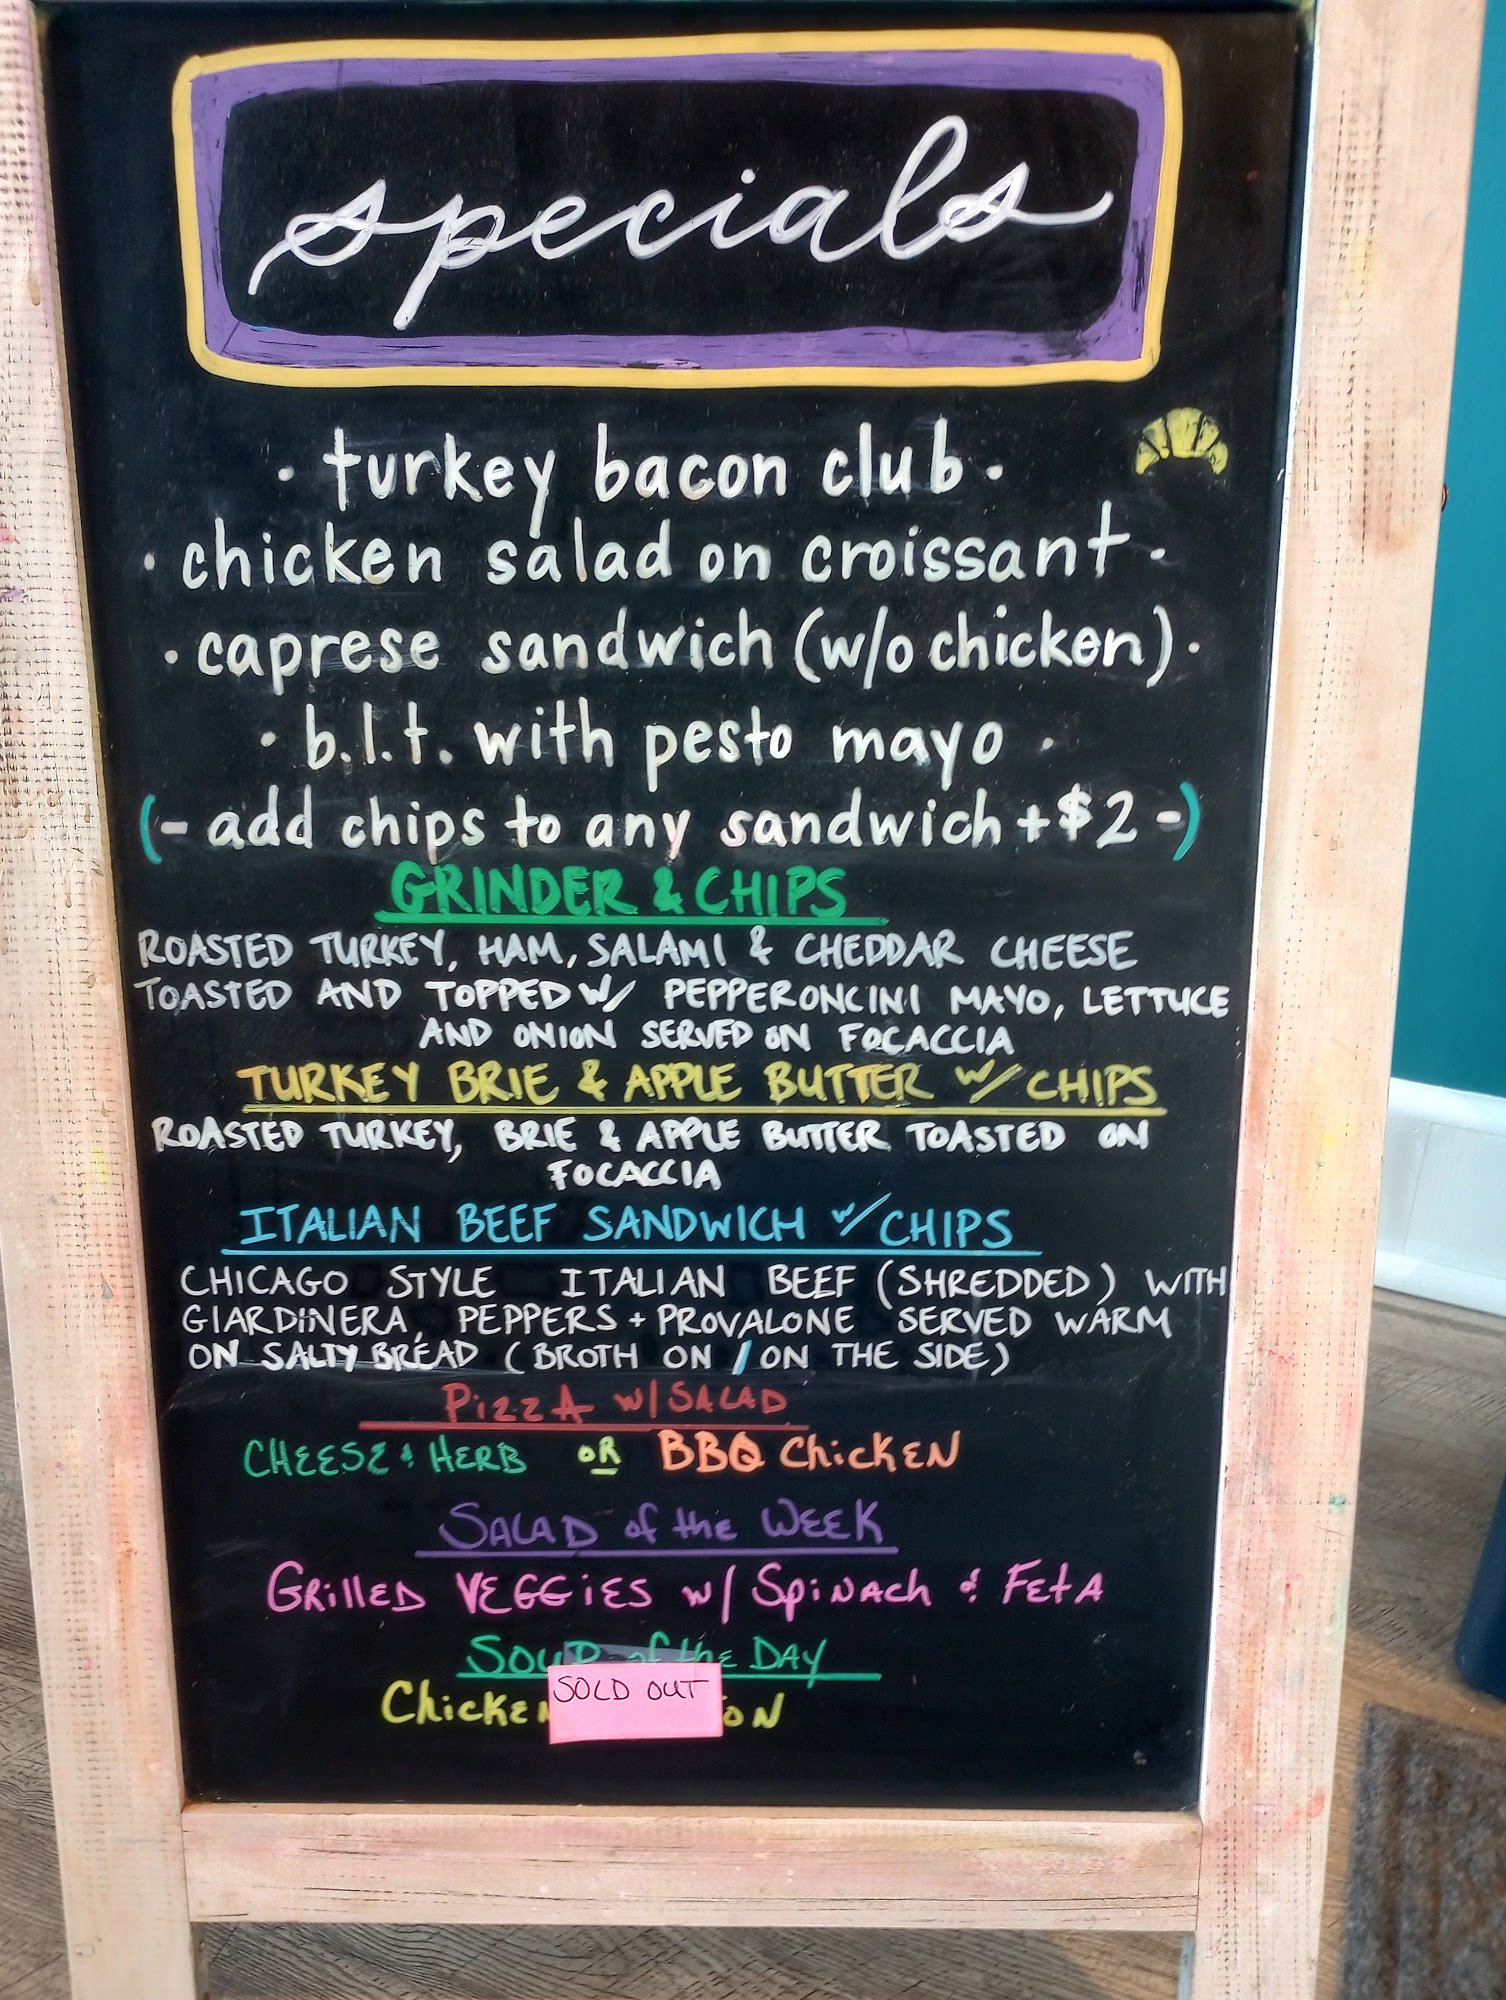 specials
· turkey bacon club ·
· chicken salad on croissant ·
· caprese sandwich (w/o chicken) ·
· b.l.t. with pesto mayo ·
(- add chips to any sandwich +$2 -)
GRINDER & CHIPS
ROASTED TURKEY, HAM, SALAMI & CHEDDAR CHEESE
TOASTED AND TOPPED W/ PEPPERONCINI MAYO, LETTUCE
AND ONION SERVED ON FOCACCIA
TURKEY BRIE & APPLE BUTTER W/ CHIPS
ROASTED TURKEY, BRIE & APPLE BUTTER TOASTED ON
FOCACCIA
ITALIAN BEEF SANDWICH W/ CHIPS
CHICAGO STYLE ITALIAN BEEF (SHREDDED) WITH
GIARDINERA, PEPPERS + PROVALONE SERVED WARM
ON SALTY BREAD (BROTH ON / ON THE SIDE)
PizzA w/ SALAD
CHEESE & HERB OR BBQ ChickEN
SALAD of the WEEK
GRillED VEGGiES w/ SpiNAch & FEtA
SOUP of the DAY
ChickEN
SOLD OUT